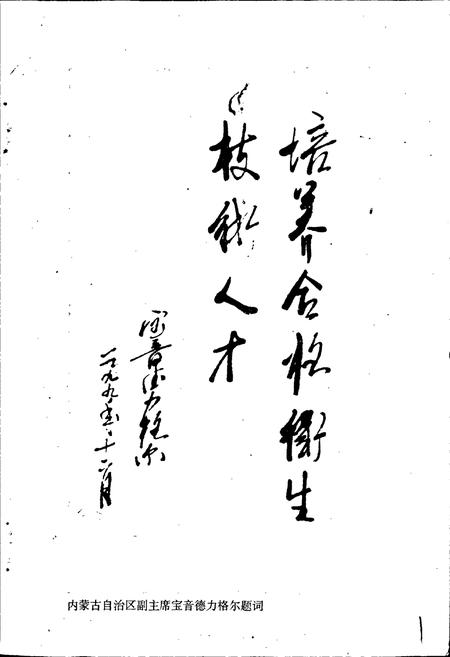 培养合格衛生
技術人才
宝音德力格尔
一九九〇年十二月
内蒙古自治区副主席宝音德力格尔题词
1